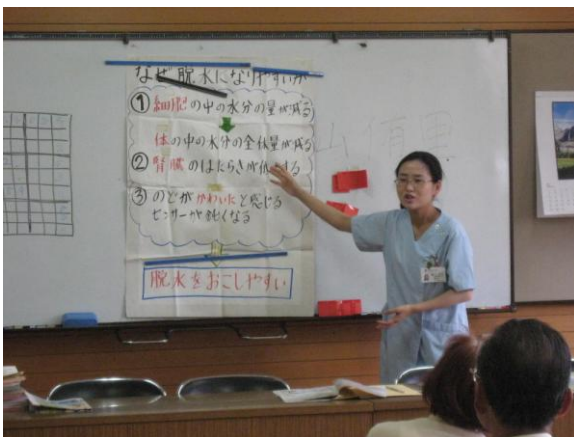 なぜ脱水になりやすいか
① 細胞の中の水分の量が減る
体の中の水分の全体量が減る
② 腎臓のはたらきが低下する
③ のどがかわいたと感じる
センサーが鈍くなる
脱水をおこしやすい